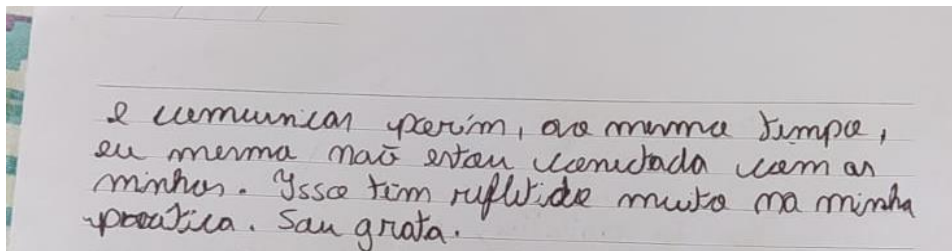 e comunicar porém, ao mesmo tempo,
eu mesma não estou conectada com as
minhas. Isso tem refletido muito na minha
prática. Sou grata.